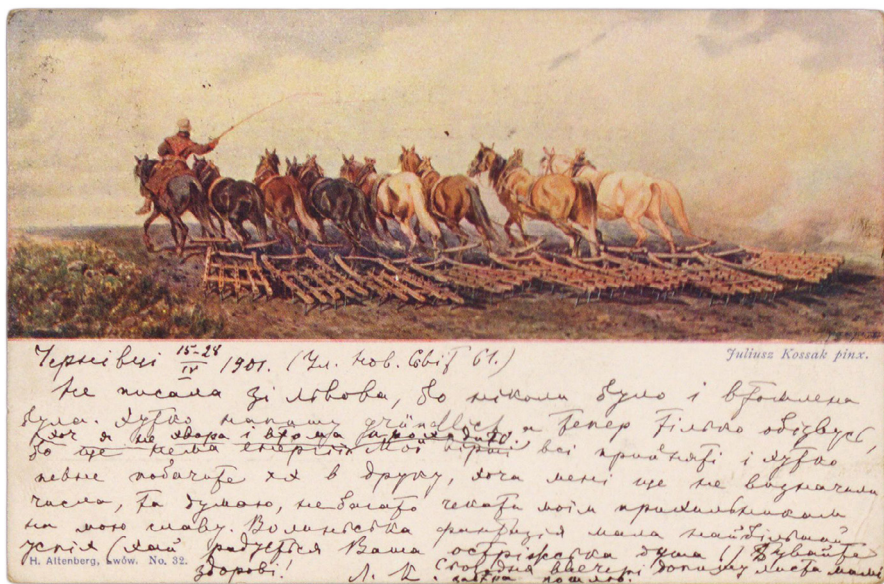 Juliusz Kossak pinx.
Чернівці 15-28/IV 1901. (Ул. нов. Світ 61.)
Не писала зі Львова, бо ніколи було і втомлена
була. Хутко напишу gründlich, а тепер тілько обізвусь,
(хоч я не хвора і втома проходить.
бо ще нема енергії. Мої вірші всі прийняті і хутко
певне побачите їх в друку, хоча мені ще не визначили
числа, та думаю, небагато чекати моїм прихильникам
на мою славу. Волинська фантазія мала найбільший
успіх (хай радується Ваша острожська душа!) Бувайте
здорові! Л. К. Сьогодня ввечері допишу листа мамі
H. Altenberg, Lwów. No. 32.